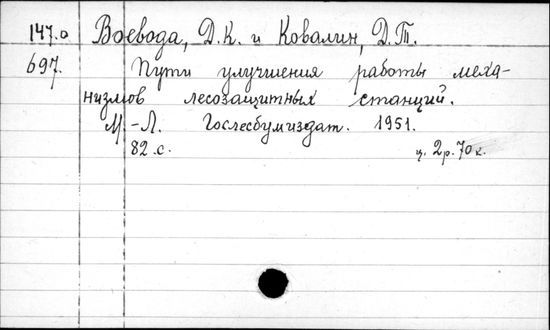 147.о Воевода, Д.К. и Ковалин, Д.Т.
697. Пути улучшения работы меха-
низмов лесозащитных станций.
М.-Л. Гослесбумиздат. 1951.
82.с. ц. 2р.70к.